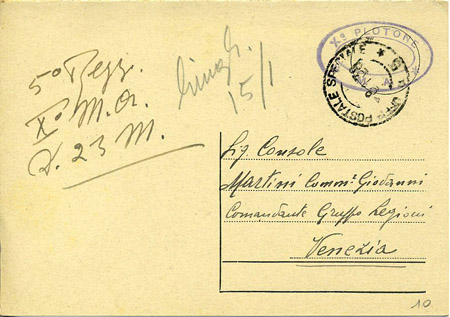 5º Regg.
Xº M.A.
23 M.
15/1
Xº PLOTONE
UFF. POSTALE SPECIALE ★ 6 ★
Sig Console
Martini Comm. Giovanni
Comandante Gruppo Legioni
Venezia
10